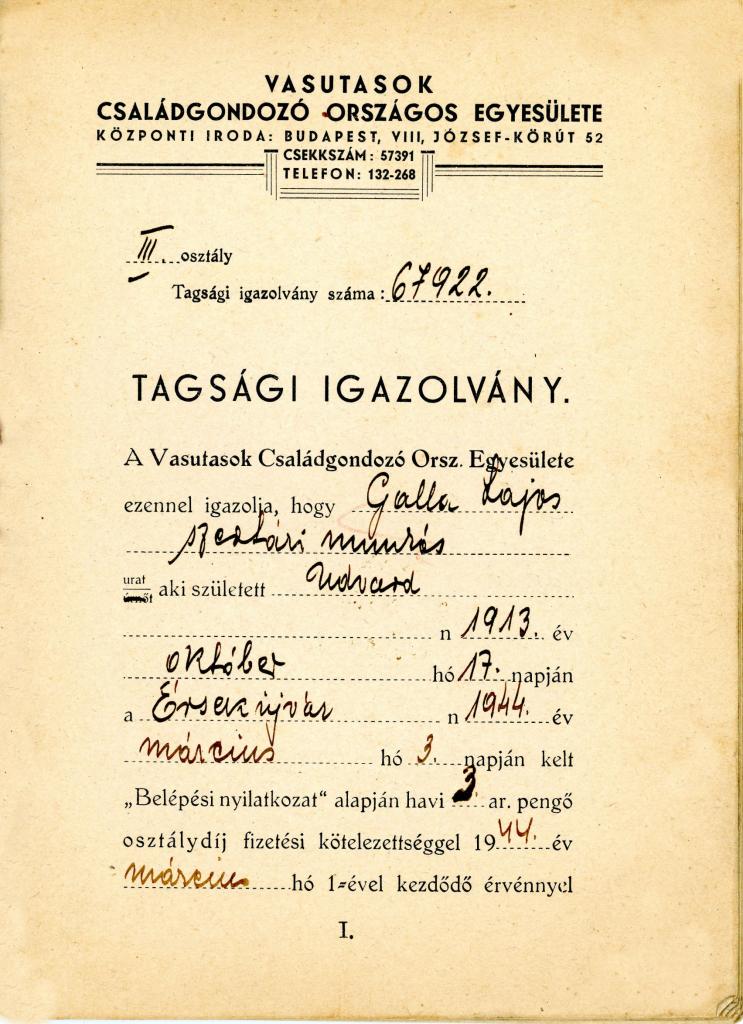 VASUTASOK
CSALÁDGONDOZÓ ORSZÁGOS EGYESÜLETE
KÖZPONTI IRODA: BUDAPEST, VIII, JÓZSEF-KÖRÚT 52
CSEKKSZÁM: 57391
TELEFON: 132-268
III. osztály
Tagsági igazolvány száma: 67922.
TAGSÁGI IGAZOLVÁNY.
A Vasutasok Családgondozó Orsz. Egyesülete
ezennel igazolja, hogy Galla Lajos
munkás
urat
aki született Udvard
n 1913. év
október hó 17. napján
a Érsekújvár n 1944. év
március hó 3. napján kelt
„Belépési nyilatkozat" alapján havi 3 ar. pengő
osztálydíj fizetési kötelezettséggel 1944. év
március hó 1-ével kezdődő érvénnyel
I.